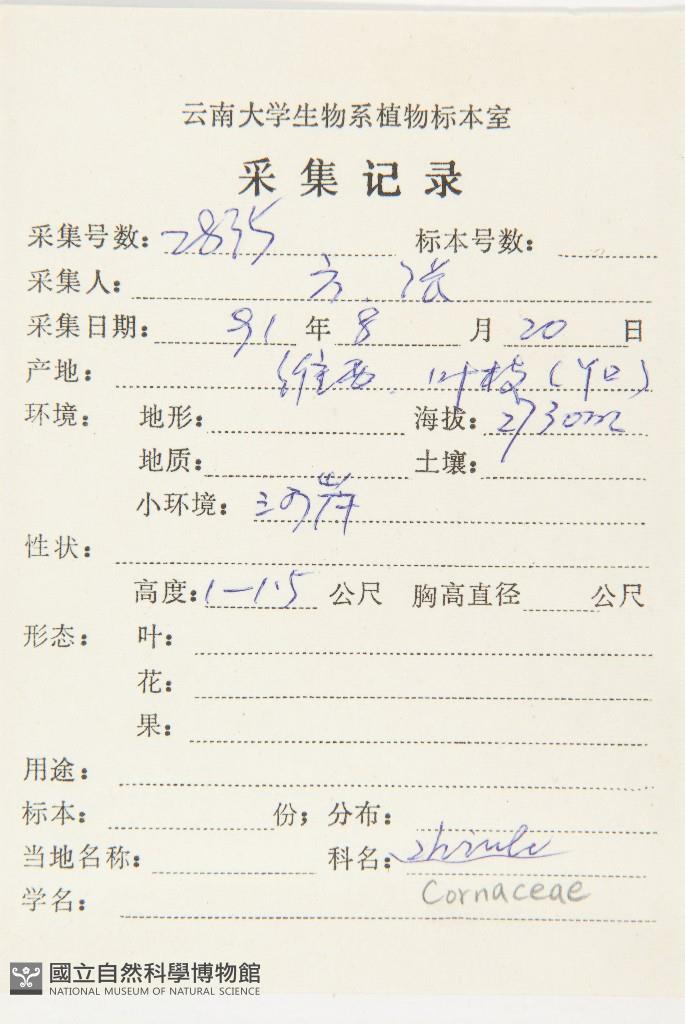 云南大学生物系植物标本室
采集记录
采集号数: 2835 标本号数:
采集人: 方、张
采集日期: 91 年 8 月 20 日
产地: 维西、叶枝(丫口)
环境: 地形: 海拔: 2730m
地质: 土壤:
小环境:
性状:
高度: 1-1.5 公尺 胸高直径 公尺
形态: 叶:
花:
果:
用途:
标本: 份; 分布:
当地名称: 科名:
Cornaceae
学名:
國立自然科學博物館
NATIONAL MUSEUM OF NATURAL SCIENCE